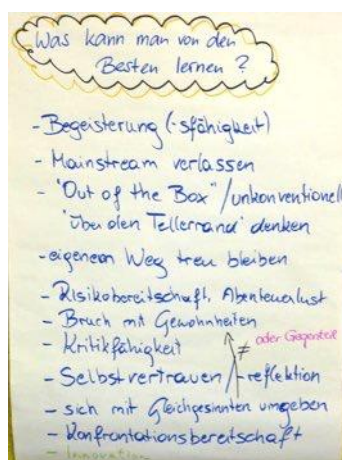 Was kann man von den
Besten lernen ?
- Begeisterung (-sfähigkeit)
- Mainstream verlassen
- "Out of the Box" / unkonventionell
"über den Tellerrand" denken
- eigenem Weg treu bleiben
- Risikobereitschaft, Abenteuerlust
- Bruch mit Gewohnheiten
≠ oder Gegenteil
- Kritikfähigkeit
- Selbstvertrauen / -reflektion
- sich mit Gleichgesinnten umgeben
- Konfrontationsbereitschaft
- Innovation